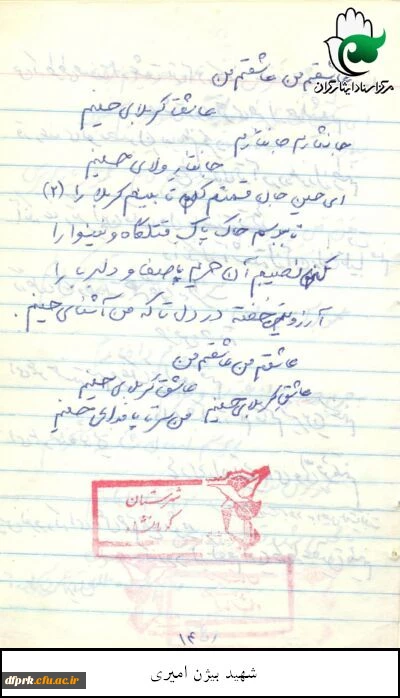 مرکز اسناد ایثارگران
عاشقم من عاشقم من
عاشق کربلای حسینم
جانثارم جانثارم
جانثار ولای حسینم
ای حسین جان قسمتم کن تا ببینم کربلا را (۲)
تا ببوسم خاک پاک قتلگاه و نینوا را
کن نصیبم آن حریم با صفا و دلربا را
آرزویی خفته در دل تا که من آشنای حسینم.
عاشقم من عاشقم من
عاشق کربلای حسینم
عاشق کربلای حسینم من سر تا پا فدای حسینم
شهرستان
dfprk.cfu.ac.ir
شهید بیژن امیری